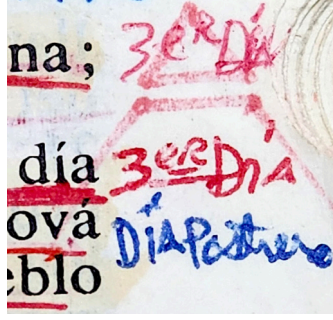 na; 3er DÍA
día 3er DÍA
ová DÍA Postrero
eblo